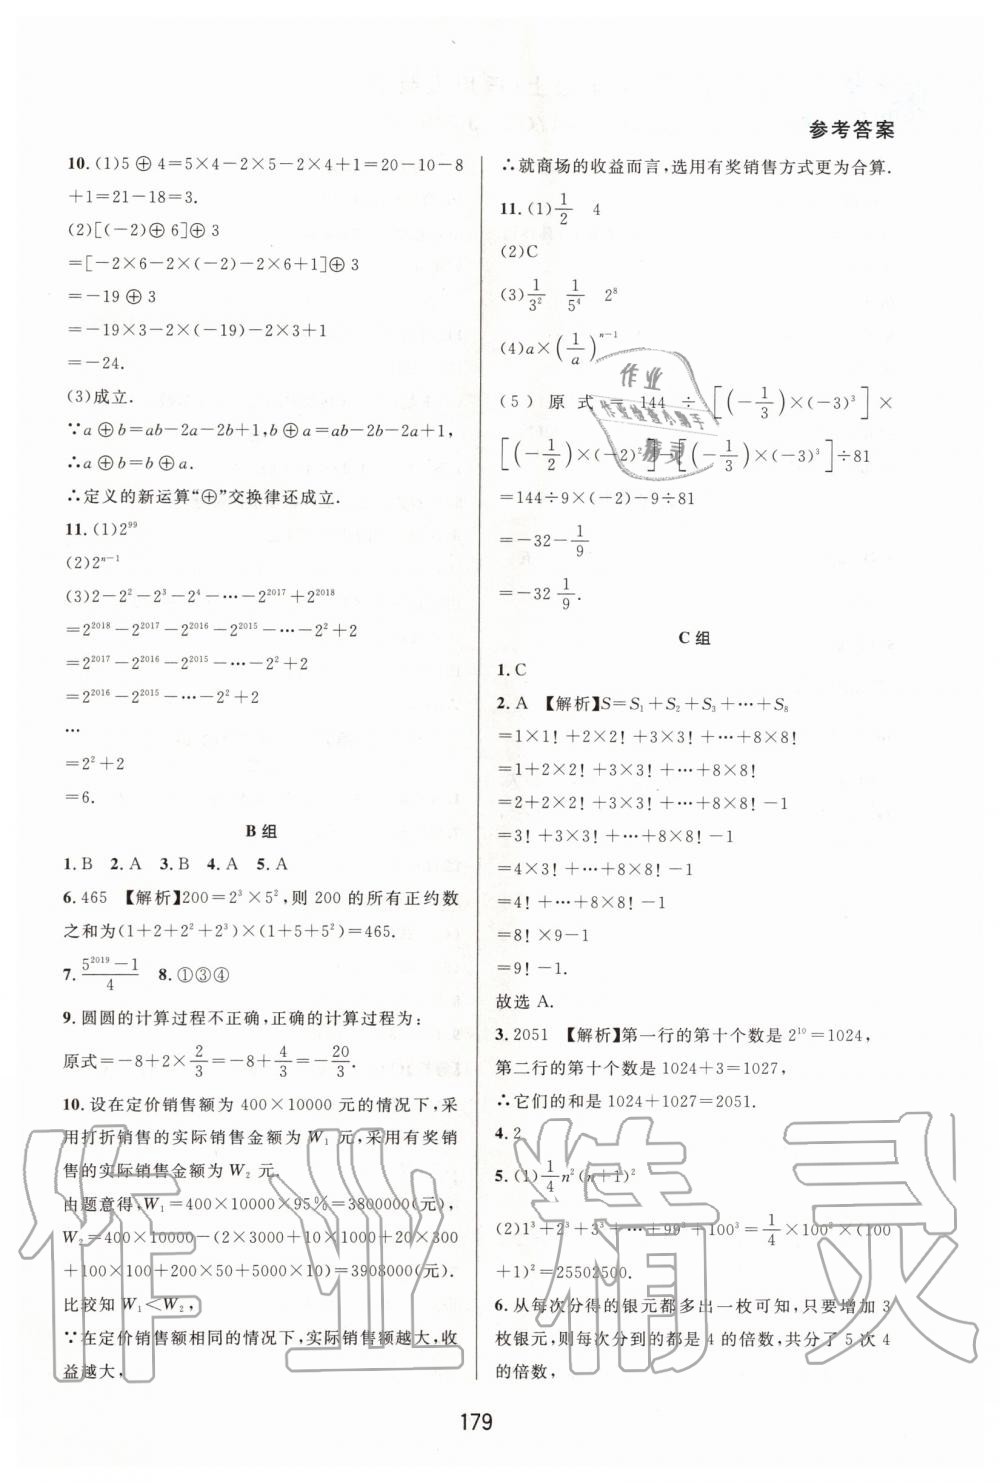 参考答案
10. (1)5 ⊕ 4=5×4-2×5-2×4+1=20-10-8
+1=21-18=3.
(2)[(-2)⊕ 6]⊕ 3
=[-2×6-2×(-2)-2×6+1]⊕ 3
=-19 ⊕ 3
=-19×3-2×(-19)-2×3+1
=-24.
(3)成立.
∵a ⊕ b=ab-2a-2b+1,b ⊕ a=ab-2a-2b+1,
∴a ⊕ b=b ⊕ a.
∴定义的新运算“⊕”交换律还成立.
11. (1)2^99
(2)2^(n-1)
(3)2-2^2-2^3-2^4-⋯-2^2017+2^2018
=2^2018-2^2017-2^2016-2^2015-⋯-2^2+2
=2^2017-2^2016-2^2015-⋯-2^2+2
=2^2016-2^2015-⋯-2^2+2
⋯
=2^2+2
=6.
B 组
1. B 2. A 3. B 4. A 5. A
6. 465 【解析】200=2^3×5^2,则 200 的所有正约数
之和为(1+2+2^2+2^3)×(1+5+5^2)=465.
7. (5^2019-1)/4 8. ①③④
9. 圆圆的计算过程不正确,正确的计算过程为:
原式=-8+2×2/3=-8+4/3=-20/3.
10. 设在定价销售额为 400×10000 元的情况下,采
用打折销售的实际销售金额为 W₁ 元,采用有奖销
售的实际销售金额为 W₂ 元.
由题意得,W₁=400×10000×95%=3800000(元),
W₂=400×10000-(2×3000+10×1000+20×300
+100×100+200×50+5000×10)=3908000(元).
比较知 W₁<W₂,
∵在定价销售额相同的情况下,实际销售额越大,收
益越大,
∴就商场的收益而言,选用有奖销售方式更为合算.
11. (1)1/2 4
(2)C
(3)1/3^2 1/5^4 2^8
(4)a×(1/a)^(n-1)
(5)原式=144÷[(-1/3)×(-3)^3]×
[(-1/2)×(-2)^2]-[(-1/3)×(-3)^3]÷81
=144÷9×(-2)-9÷81
=-32-1/9
=-32 1/9.
C 组
1. C
2. A 【解析】S=S₁+S₂+S₃+⋯+S₈
=1×1! +2×2! +3×3! +⋯+8×8!
=1+2×2! +3×3! +⋯+8×8!
=2+2×2! +3×3! +⋯+8×8! -1
=3! +3×3! +⋯+8×8! -1
=4×3! +⋯+8×8! -1
=4! +⋯+8×8! -1
=8! ×9-1
=9! -1.
故选 A.
3. 2051 【解析】第一行的第十个数是 2^10=1024,
第二行的第十个数是 1024+3=1027,
∴它们的和是 1024+1027=2051.
4. 2
5. (1)1/4 n^2(n+1)^2
(2)1^3+2^3+3^3+⋯+99^3+100^3=1/4×100^2×(100
+1)^2=25502500.
6. 从每次分得的银元都多出一枚可知,只要增加 3
枚银元,则每次分到的都是 4 的倍数,共分了 5 次 4
的倍数,
179
作业
作业检查小助手
精灵
作业精灵